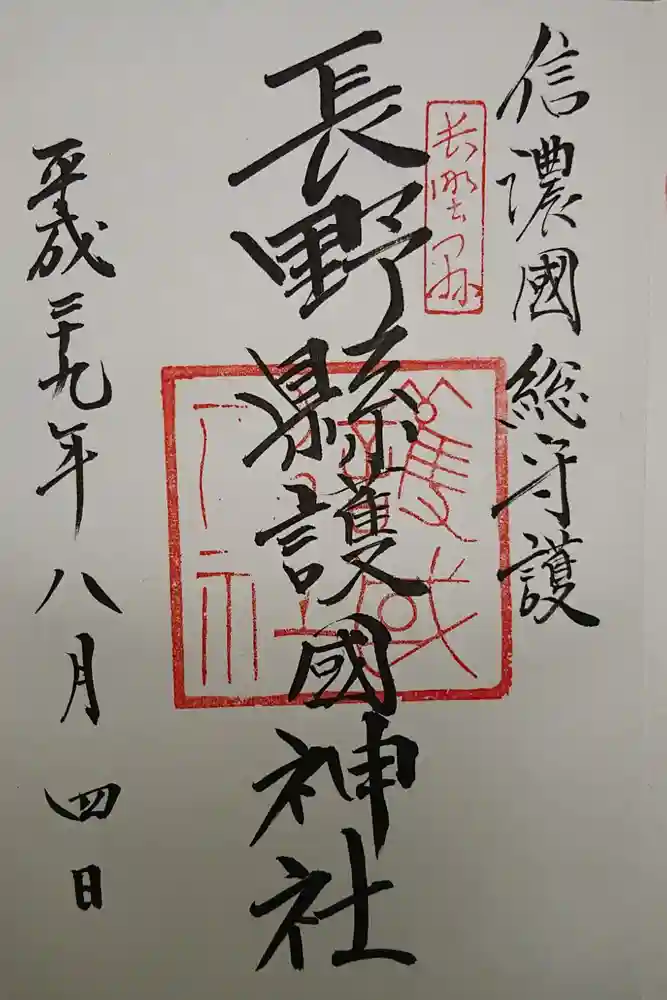 信濃國総守護
長野縣
長野縣護國神社
平成二十九年八月四日